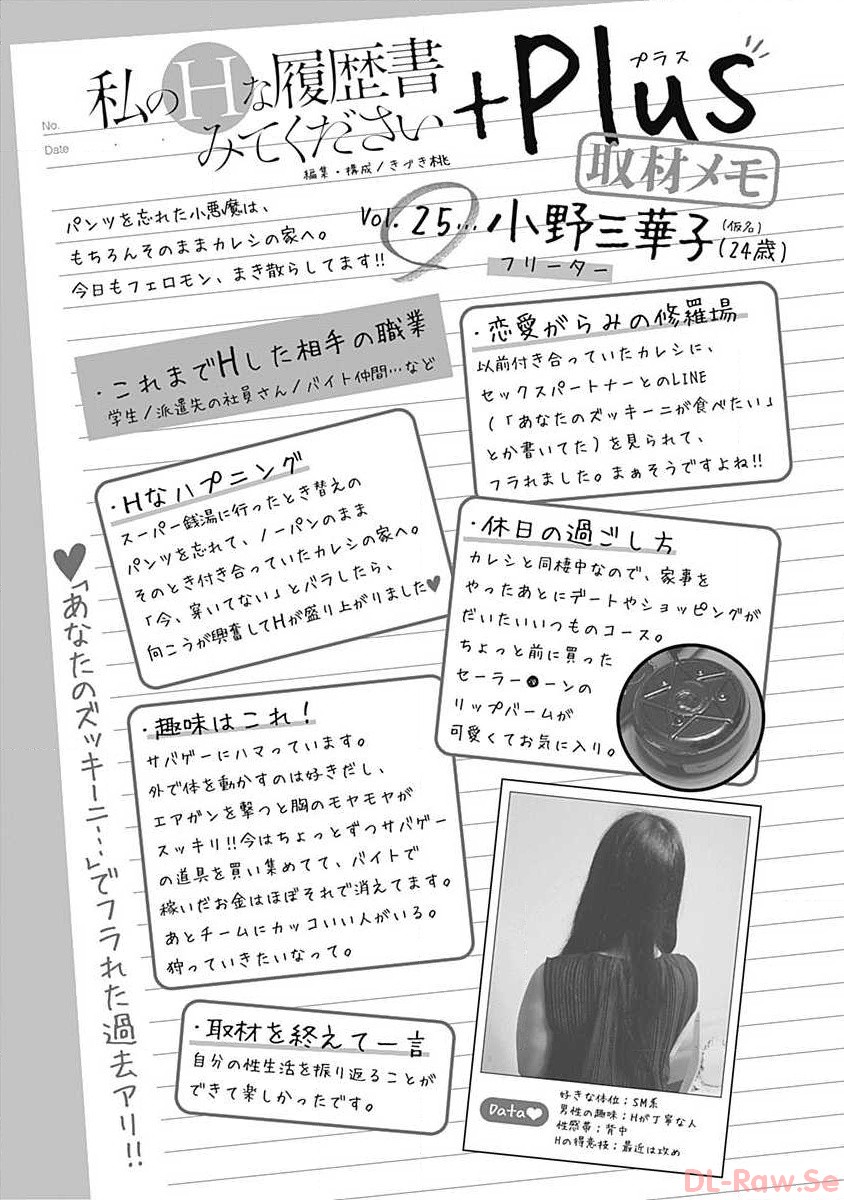 No.
Date
私のHな履歴書
みてください
+Plus
プラス
編集・構成/きづき桃
取材メモ
パンツを忘れた小悪魔は、
もちろんそのままカレシの家へ。
今日もフェロモン、まき散らしてます!!
Vol. 25… 小野三華子(仮名)(24歳)
フリーター
・これまでHした相手の職業
学生/派遣先の社員さん/バイト仲間…など
・恋愛がらみの修羅場
以前付き合っていたカレシに、
セックスパートナーとのLINE
(「あなたのズッキーニが食べたい」
とか書いてた)を見られて、
フラれました。まぁそうですよね!!
・Hなハプニング
スーパー銭湯に行ったとき替えの
パンツを忘れて、ノーパンのまま
そのとき付き合っていたカレシの家へ。
「今、穿いてない」とバラしたら、
向こうが興奮してHが盛り上がりました♥
・休日の過ごし方
カレシと同棲中なので、家事を
やったあとにデートやショッピングが
だいたいいつものコース。
ちょっと前に買った
セーラー●ーンの
リップバームが
可愛くてお気に入り。
♥「あなたのズッキーニ…」でフラれた過去アリ!!
・趣味はこれ!
サバゲーにハマっています。
外で体を動かすのは好きだし、
エアガンを撃つと胸のモヤモヤが
スッキリ!!今はちょっとずつサバゲー
の道具を買い集めてて、バイトで
稼いだお金はほぼそれで消えてます。
あとチームにカッコいい人がいる。
狩っていきたいなって。
・取材を終えて一言
自分の性生活を振り返ることが
できて楽しかったです。
Data♥
好きな体位;SM系
男性の趣味;Hが丁寧な人
性感帯;背中
Hの得意技;最近は攻め
DL-Raw.Se